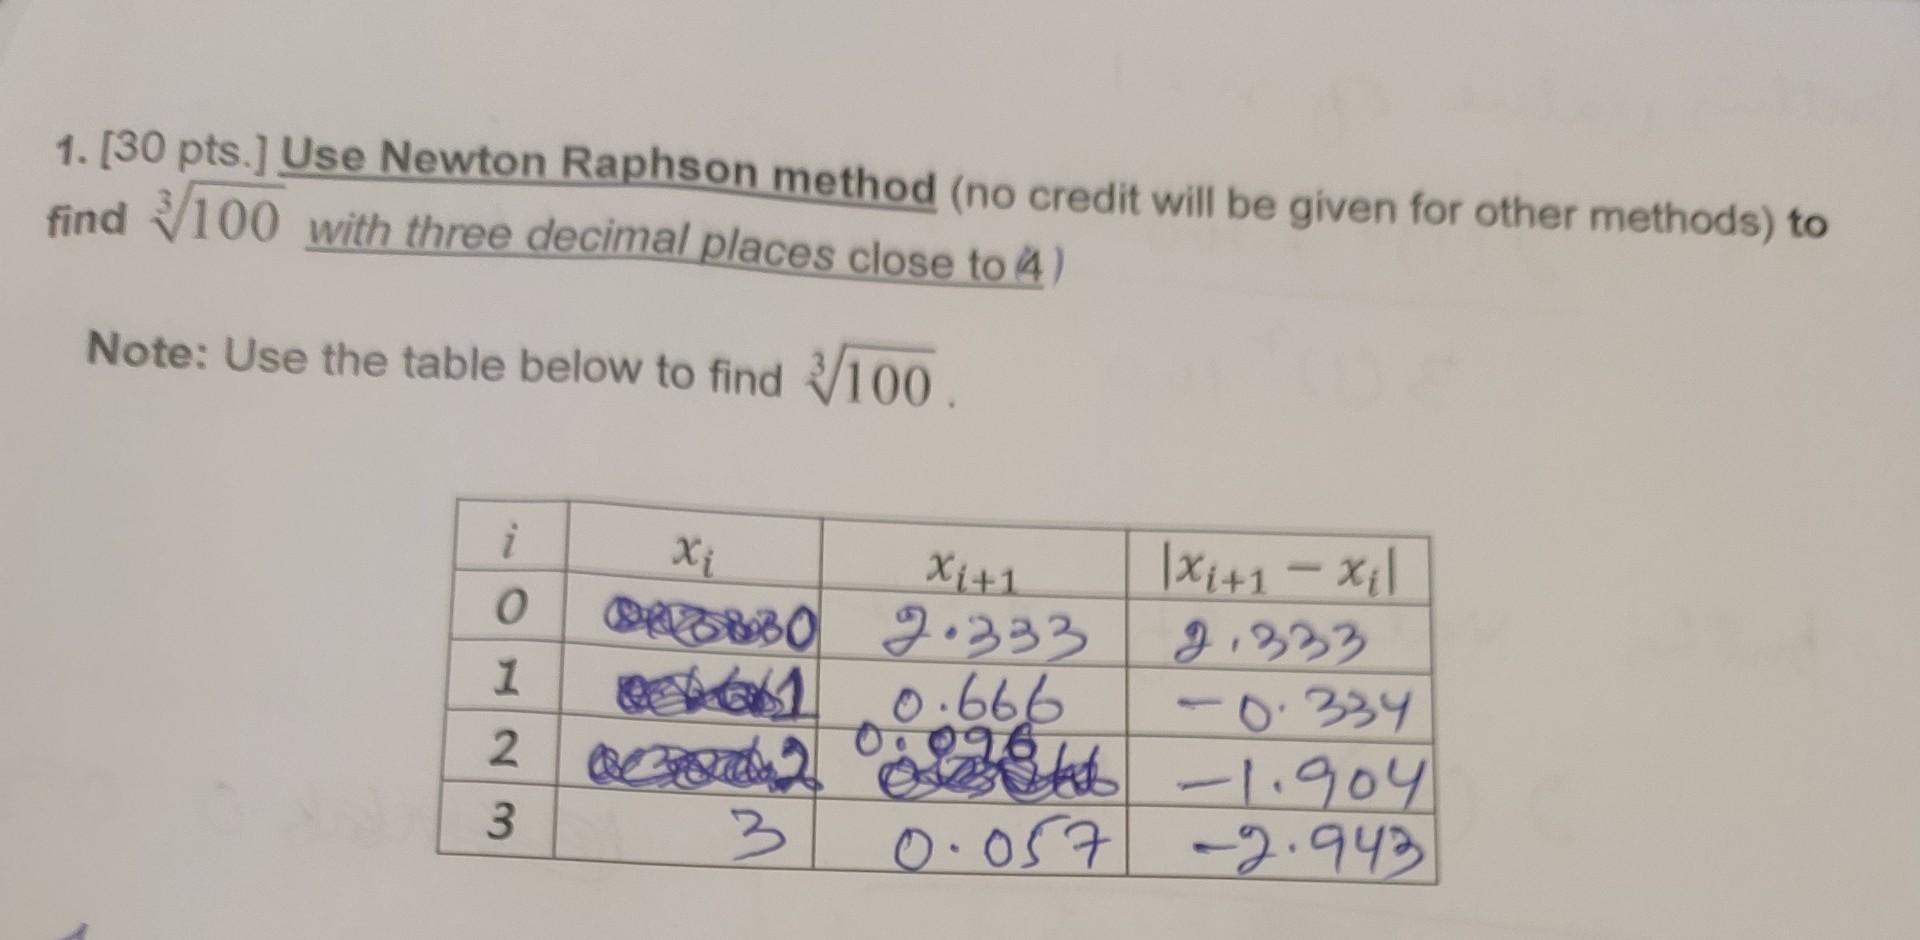 1. [30 pts.] Use Newton Raphson method (no credit will be given for other methods) to
find ∛100 with three decimal places close to (4)
Note: Use the table below to find ∛100 .
i x_i x_{i+1} |x_{i+1} − x_i|
0 0 2.333 2.333
1 1 0.666 -0.334
2 2 0.096 -1.904
3 3 0.057 -2.943